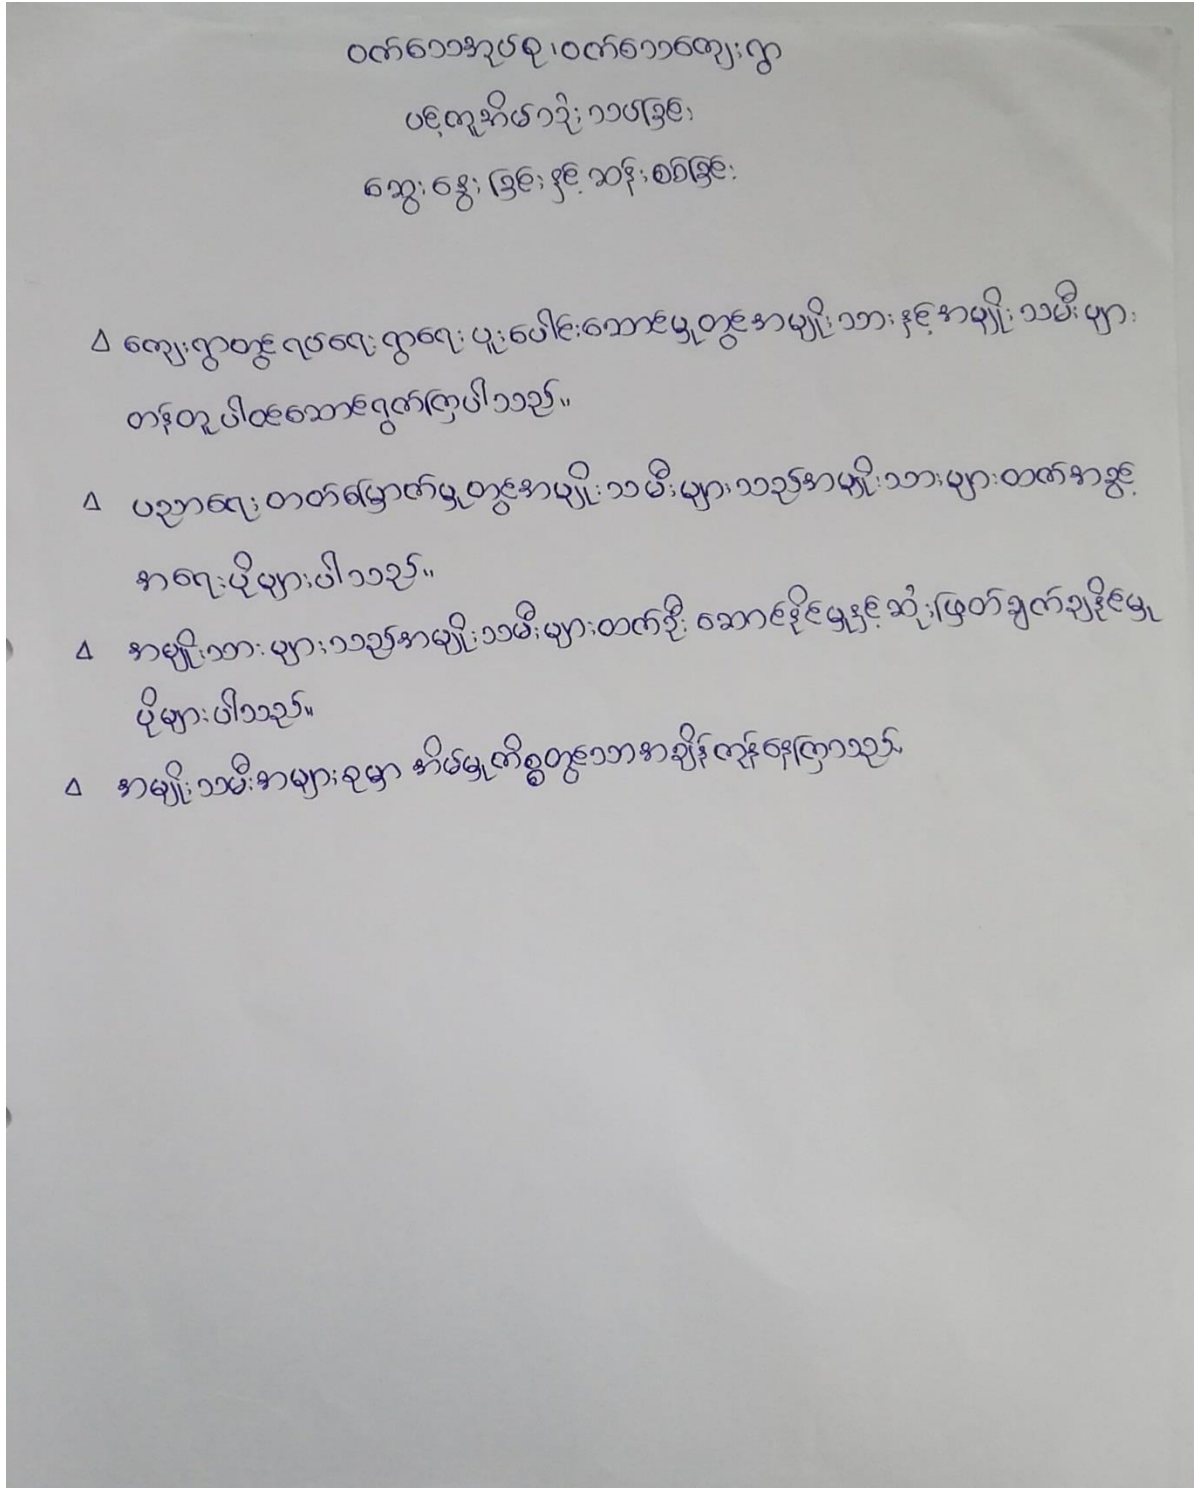 ဝက်သေအုပ်စု၊ဝက်သေကျေးရွာ
ပင့်ကူအိမ်သုံးသပ်ခြင်း
ဆွေးနွေးခြင်းနှင့်ဆန်းစစ်ခြင်း
∆ ကျေးရွာတွင်ရပ်ရေးရွာရေးပူးပေါင်းဆောင်မှုတွင်အမျိုးသားနှင့်အမျိုးသမီးများ
တန်တူပါဝင်ဆောင်ရွက်ကြပါသည်။
∆ ပညာရေးတတ်မြောက်မှုတွင်အမျိုးသမီးများသည်အမျိုးသားများထက်အခွင့်
အရေးပိုများပါသည်။
∆ အမျိုးသားများသည်အမျိုးသမီးများထက်ဦးဆောင်နိုင်မှုနှင့်ဆုံးဖြတ်ချက်ချနိုင်မှု
ပိုများပါသည်။
∆ အမျိုးသမီးအများစုမှာ အိမ်မှုကိစ္စတွင်သာအချိန်ကုန်နေကြသည်